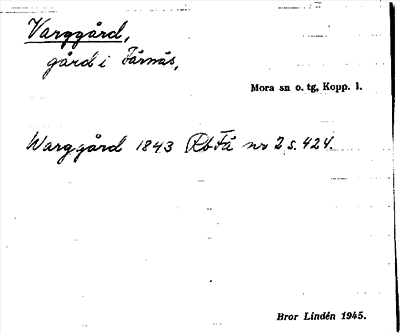 Varggård,
gård i Färnäs,
Mora sn o. tg, Kopp. l.
Warggård 1843 Rb Fä nr 2 s. 424.
Bror Lindén 1945.